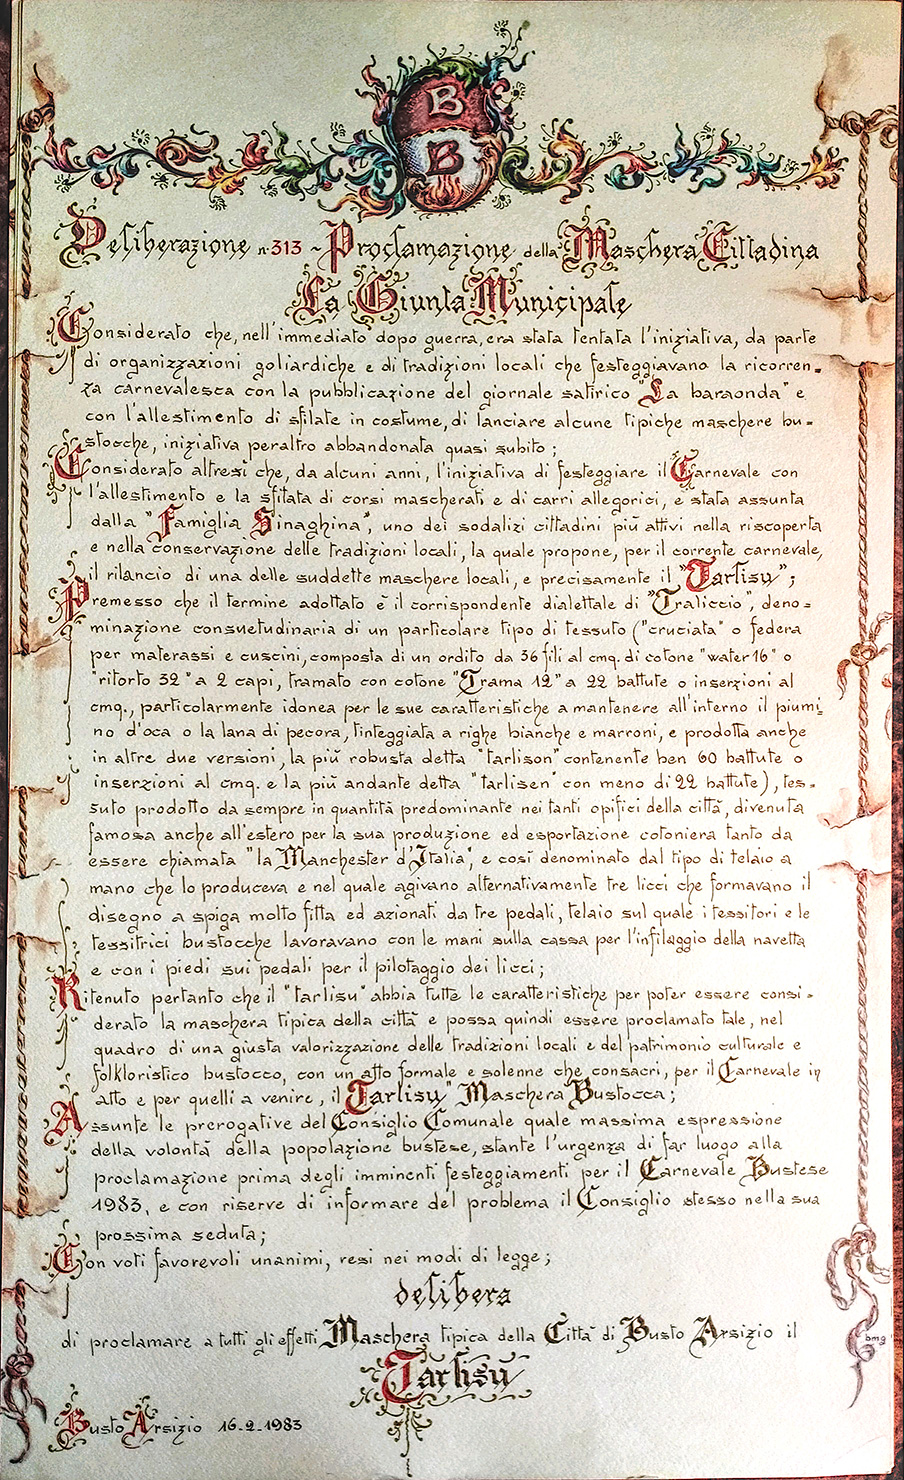 B
B
Deliberazione n. 313 ~ Proclamazione della Maschera Cittadina
La Giunta Municipale
Considerato che, nell'immediato dopo guerra, era stata tentata l'iniziativa, da parte
di organizzazioni goliardiche e di tradizioni locali che festeggiavano la ricorren=
za carnevalesca con la pubblicazione del giornale satirico "La baraonda" e
con l'allestimento di sfilate in costume, di lanciare alcune tipiche maschere bu=
stocche, iniziativa peraltro abbandonata quasi subito;
Considerato altresì che, da alcuni anni, l'iniziativa di festeggiare il Carnevale con
l'allestimento e la sfilata di corsi mascherati e di carri allegorici, è stata assunta
dalla "Famiglia Sinaghina", uno dei sodalizi cittadini più attivi nella riscoperta
e nella conservazione delle tradizioni locali, la quale propone, per il corrente carnevale,
il rilancio di una delle suddette maschere locali, e precisamente il "Tarlisu";
Premesso che il termine adottato è il corrispondente dialettale di "Traliccio", deno=
minazione consuetudinaria di un particolare tipo di tessuto ("cruciata" o federa
per materassi e cuscini, composta di un ordito da 36 fili al cmq. di cotone "water 16" o
"ritorto 32" a 2 capi, tramato con cotone "Trama 12" a 22 battute o inserzioni al
cmq., particolarmente idonea per le sue caratteristiche a mantenere all'interno il piumi=
no d'oca o la lana di pecora, tinteggiata a righe bianche e marroni, e prodotta anche
in altre due versioni, la più robusta detta "tarlison" contenente ben 60 battute o
inserzioni al cmq. e la più andante detta "tarlisen" con meno di 22 battute), tes=
suto prodotto da sempre in quantità predominante nei tanti opifici della città, divenuta
famosa anche all'estero per la sua produzione ed esportazione cotoniera tanto da
essere chiamata "la Manchester d'Italia", e così denominato dal tipo di telaio a
mano che lo produceva e nel quale agivano alternativamente tre licci che formavano il
disegno a spiga molto fitta ed azionati da tre pedali, telaio sul quale i tessitori e le
tessitrici bustocche lavoravano con le mani sulla cassa per l'infilaggio della navetta
e con i piedi sui pedali per il pilotaggio dei licci;
Ritenuto pertanto che il "tarlisu" abbia tutte le caratteristiche per poter essere consi=
derato la maschera tipica della città e possa quindi essere proclamato tale, nel
quadro di una giusta valorizzazione delle tradizioni locali e del patrimonio culturale e
folkloristico bustocco, con un atto formale e solenne che consacri, per il Carnevale in
atto e per quelli a venire, il "Tarlisu" Maschera Bustocca;
Assunte le prerogative del Consiglio Comunale quale massima espressione
della volontà della popolazione bustese, stante l'urgenza di far luogo alla
proclamazione prima degli imminenti festeggiamenti per il Carnevale Bustese
1983, e con riserve di informare del problema il Consiglio stesso nella sua
prossima seduta;
Con voti favorevoli unanimi, resi nei modi di legge;
delibera
di proclamare a tutti gli effetti Maschera tipica della Città di Busto Arsizio il
Tarlisu
bmg
Busto Arsizio 16-2-1983